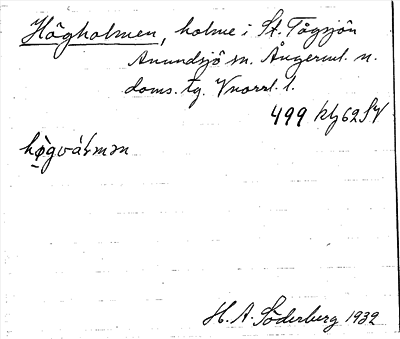 Högholmen, holme i St. Tågsjön
Anundsjö sn. Ångerml. n.
doms. tg. Vnorrl. l.
499 ktz 62 SV
hø̀gvàɽmən
H. A. Söderberg 1932